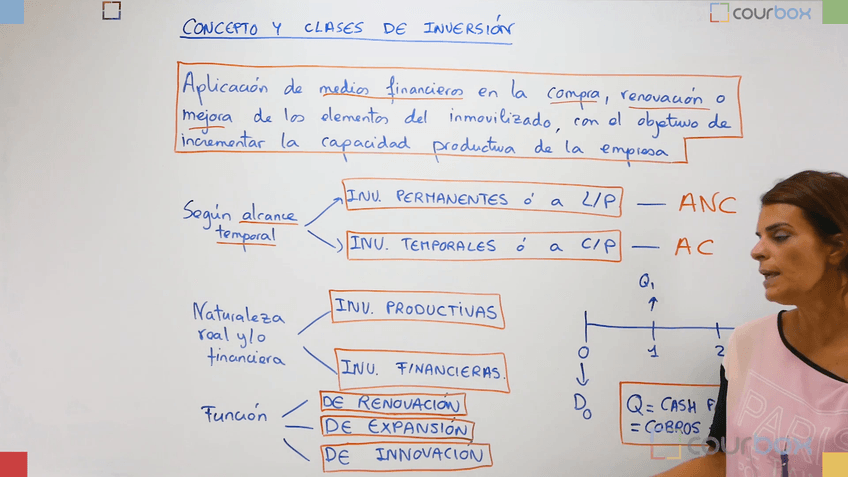 courbox
CONCEPTO Y CLASES DE INVERSIÓN
Aplicación de medios financieros en la compra, renovación o
mejora de los elementos del inmovilizado, con el objetivo de
incrementar la capacidad productiva de la empresa
Según alcance
temporal
INV. PERMANENTES ó a L/P — ANC
INV. TEMPORALES ó a C/P — AC
Naturaleza
real y/o
financiera
INV. PRODUCTIVAS
INV. FINANCIERAS.
Función
DE RENOVACIÓN
DE EXPANSIÓN
DE INNOVACION
Q1
0 1 2
D0
Q = CASH
= COBROS
PARIS
courbox